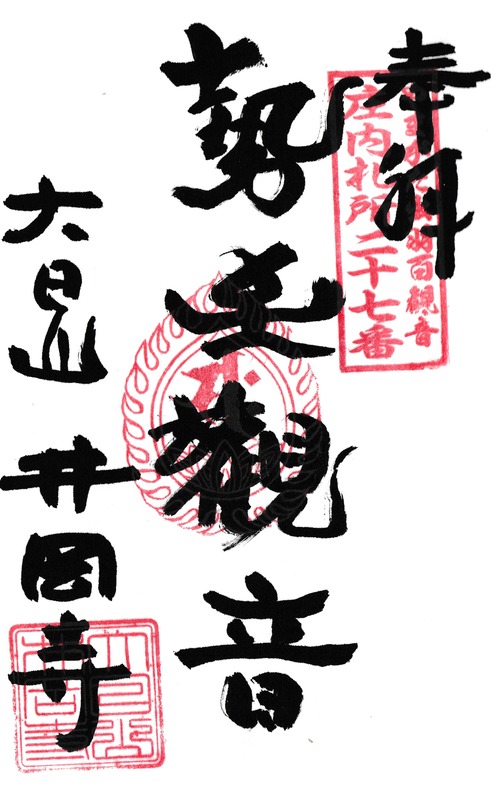 奉拝
出羽百観音
庄内札所二十七番
勢至観音
大日山 井岡寺